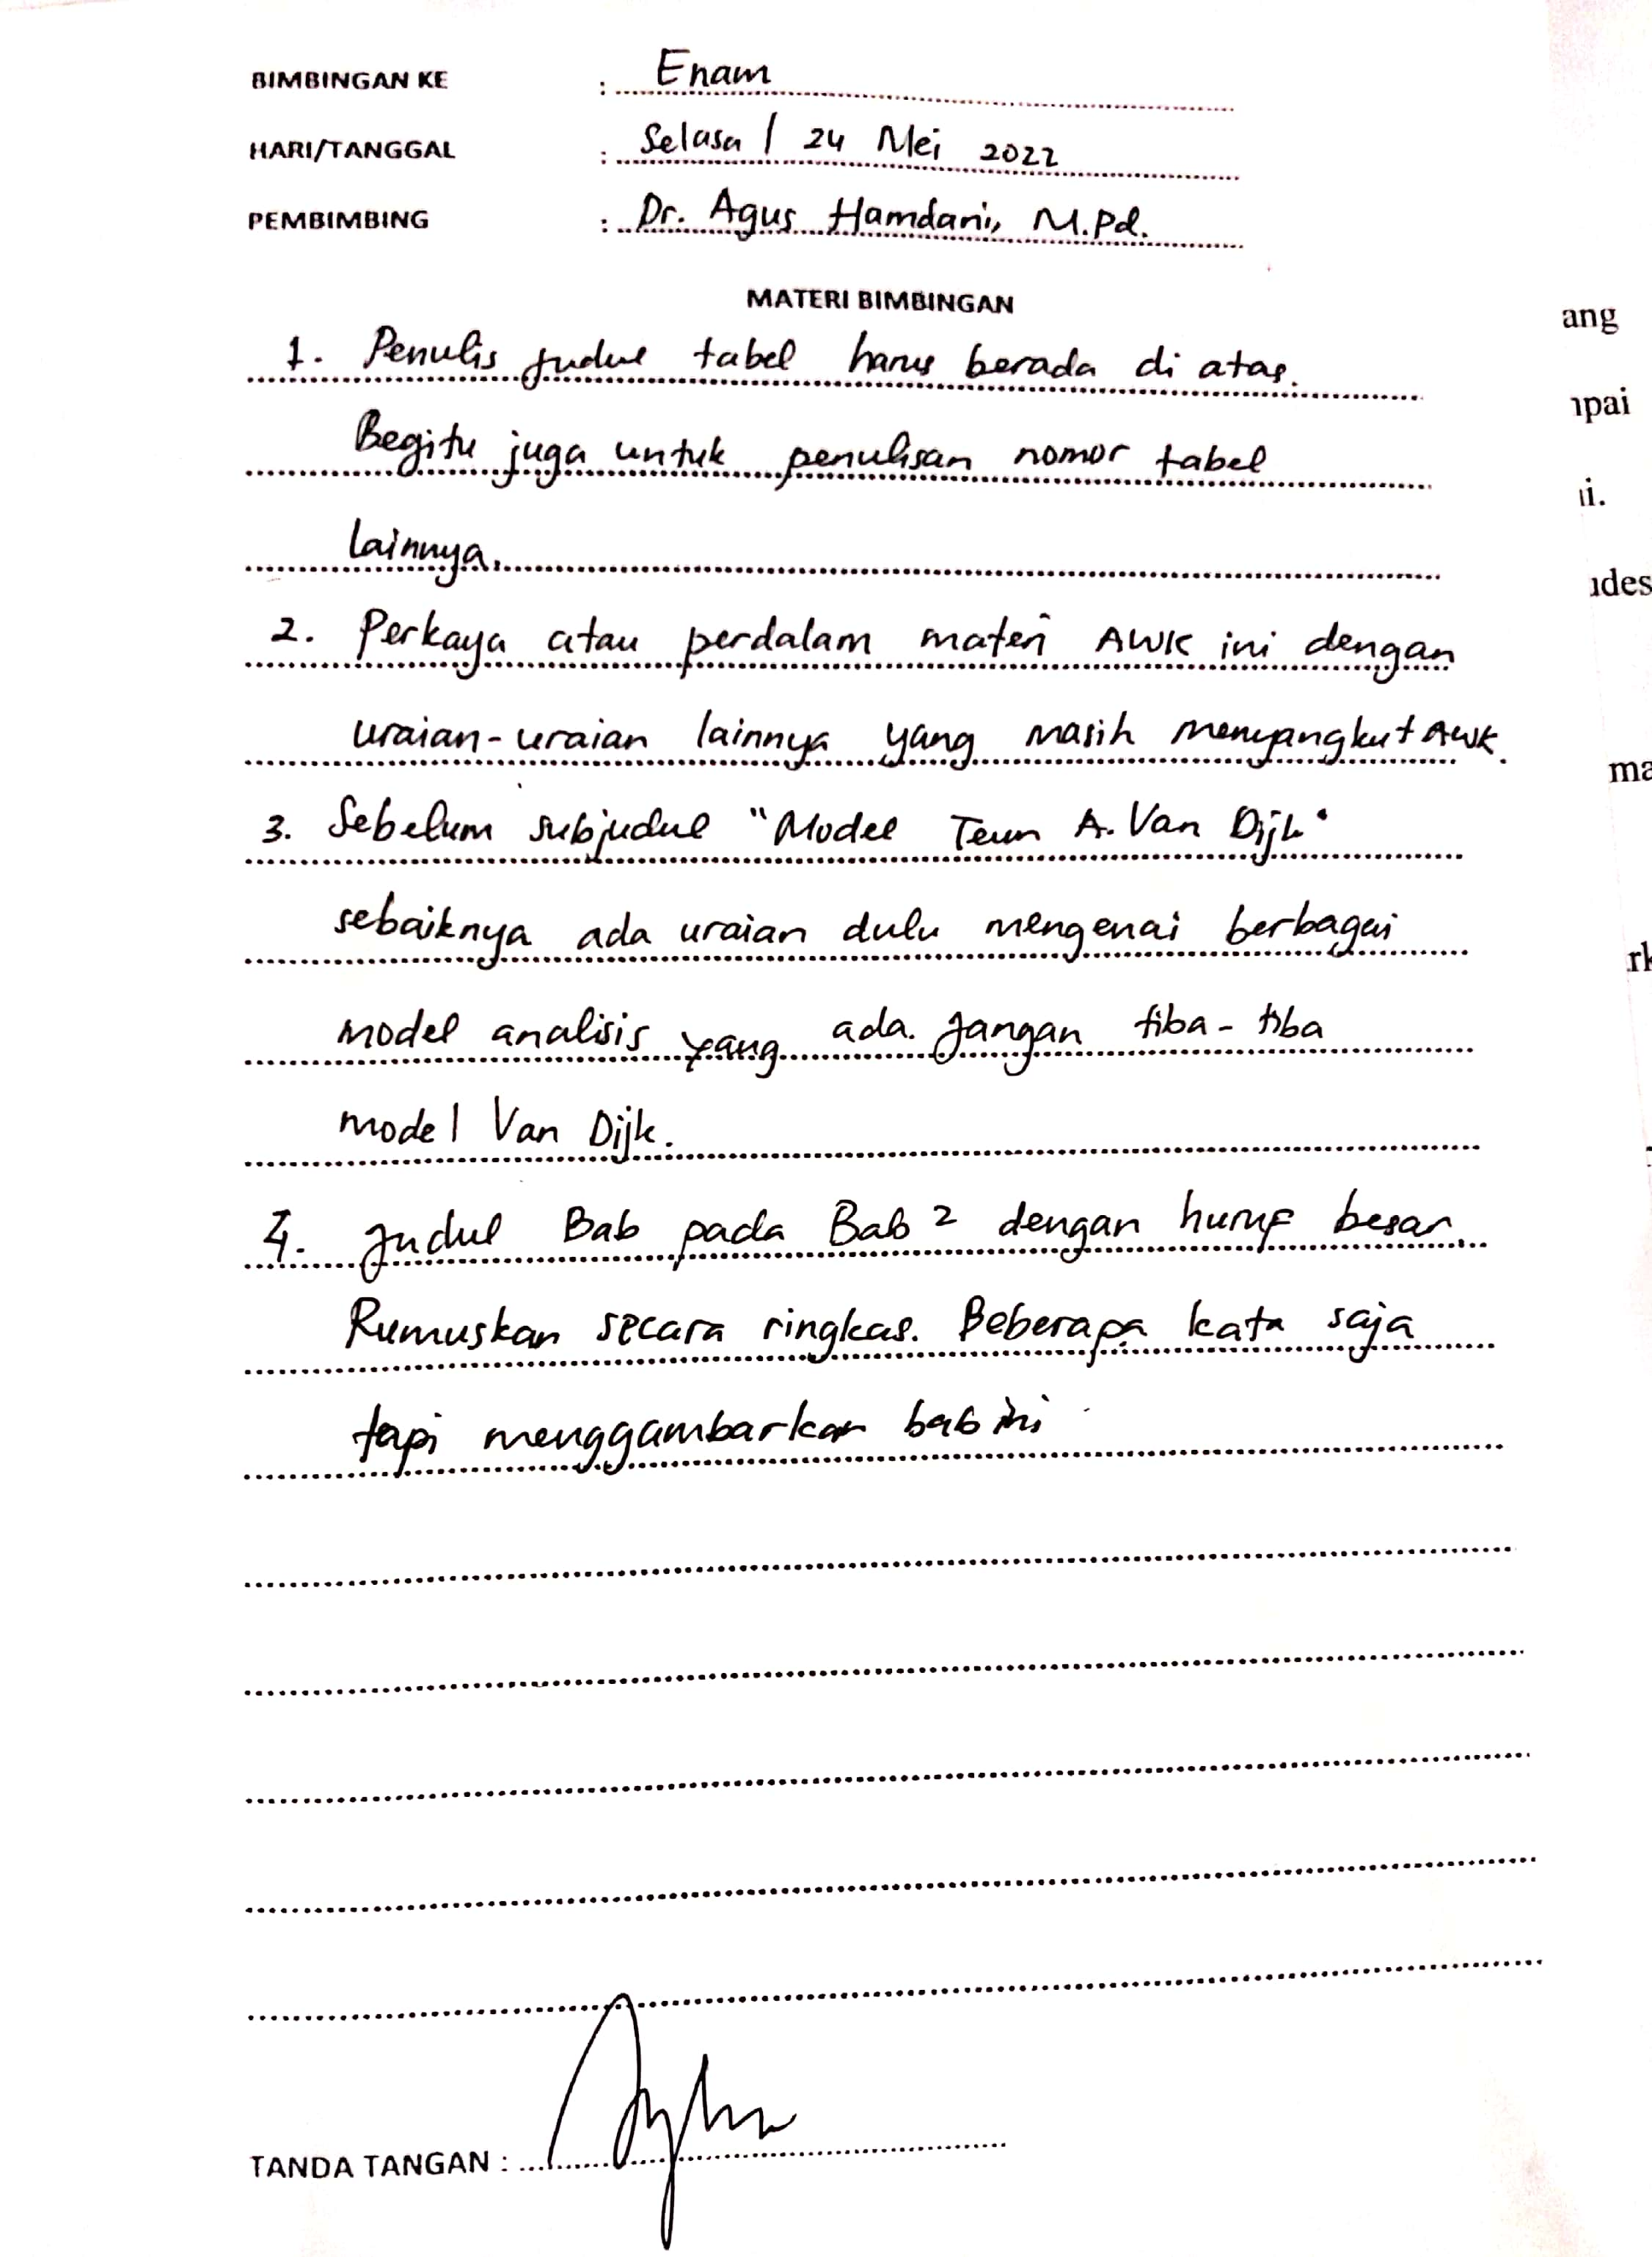 BIMBINGAN KE : Enam
HARI/TANGGAL : Selasa / 24 Mei 2022
PEMBIMBING : Dr. Agus Hamdani, M.Pd.
MATERI BIMBINGAN
1. Penulis judul tabel harus berada di atas.
Begitu juga untuk penulisan nomor tabel
lainnya.
2. Perkaya atau perdalam materi AWK ini dengan
uraian-uraian lainnya yang masih menyangkut AWK.
3. Sebelum subjudul "Model Teun A. Van Dijk"
sebaiknya ada uraian dulu mengenai berbagai
model analisis yang ada. Jangan tiba-tiba
model Van Dijk.
4. Judul Bab pada Bab 2 dengan huruf besar.
Rumuskan secara ringkas. Beberapa kata saja
tapi menggambarkan bab ini
TANDA TANGAN :
ang
ma